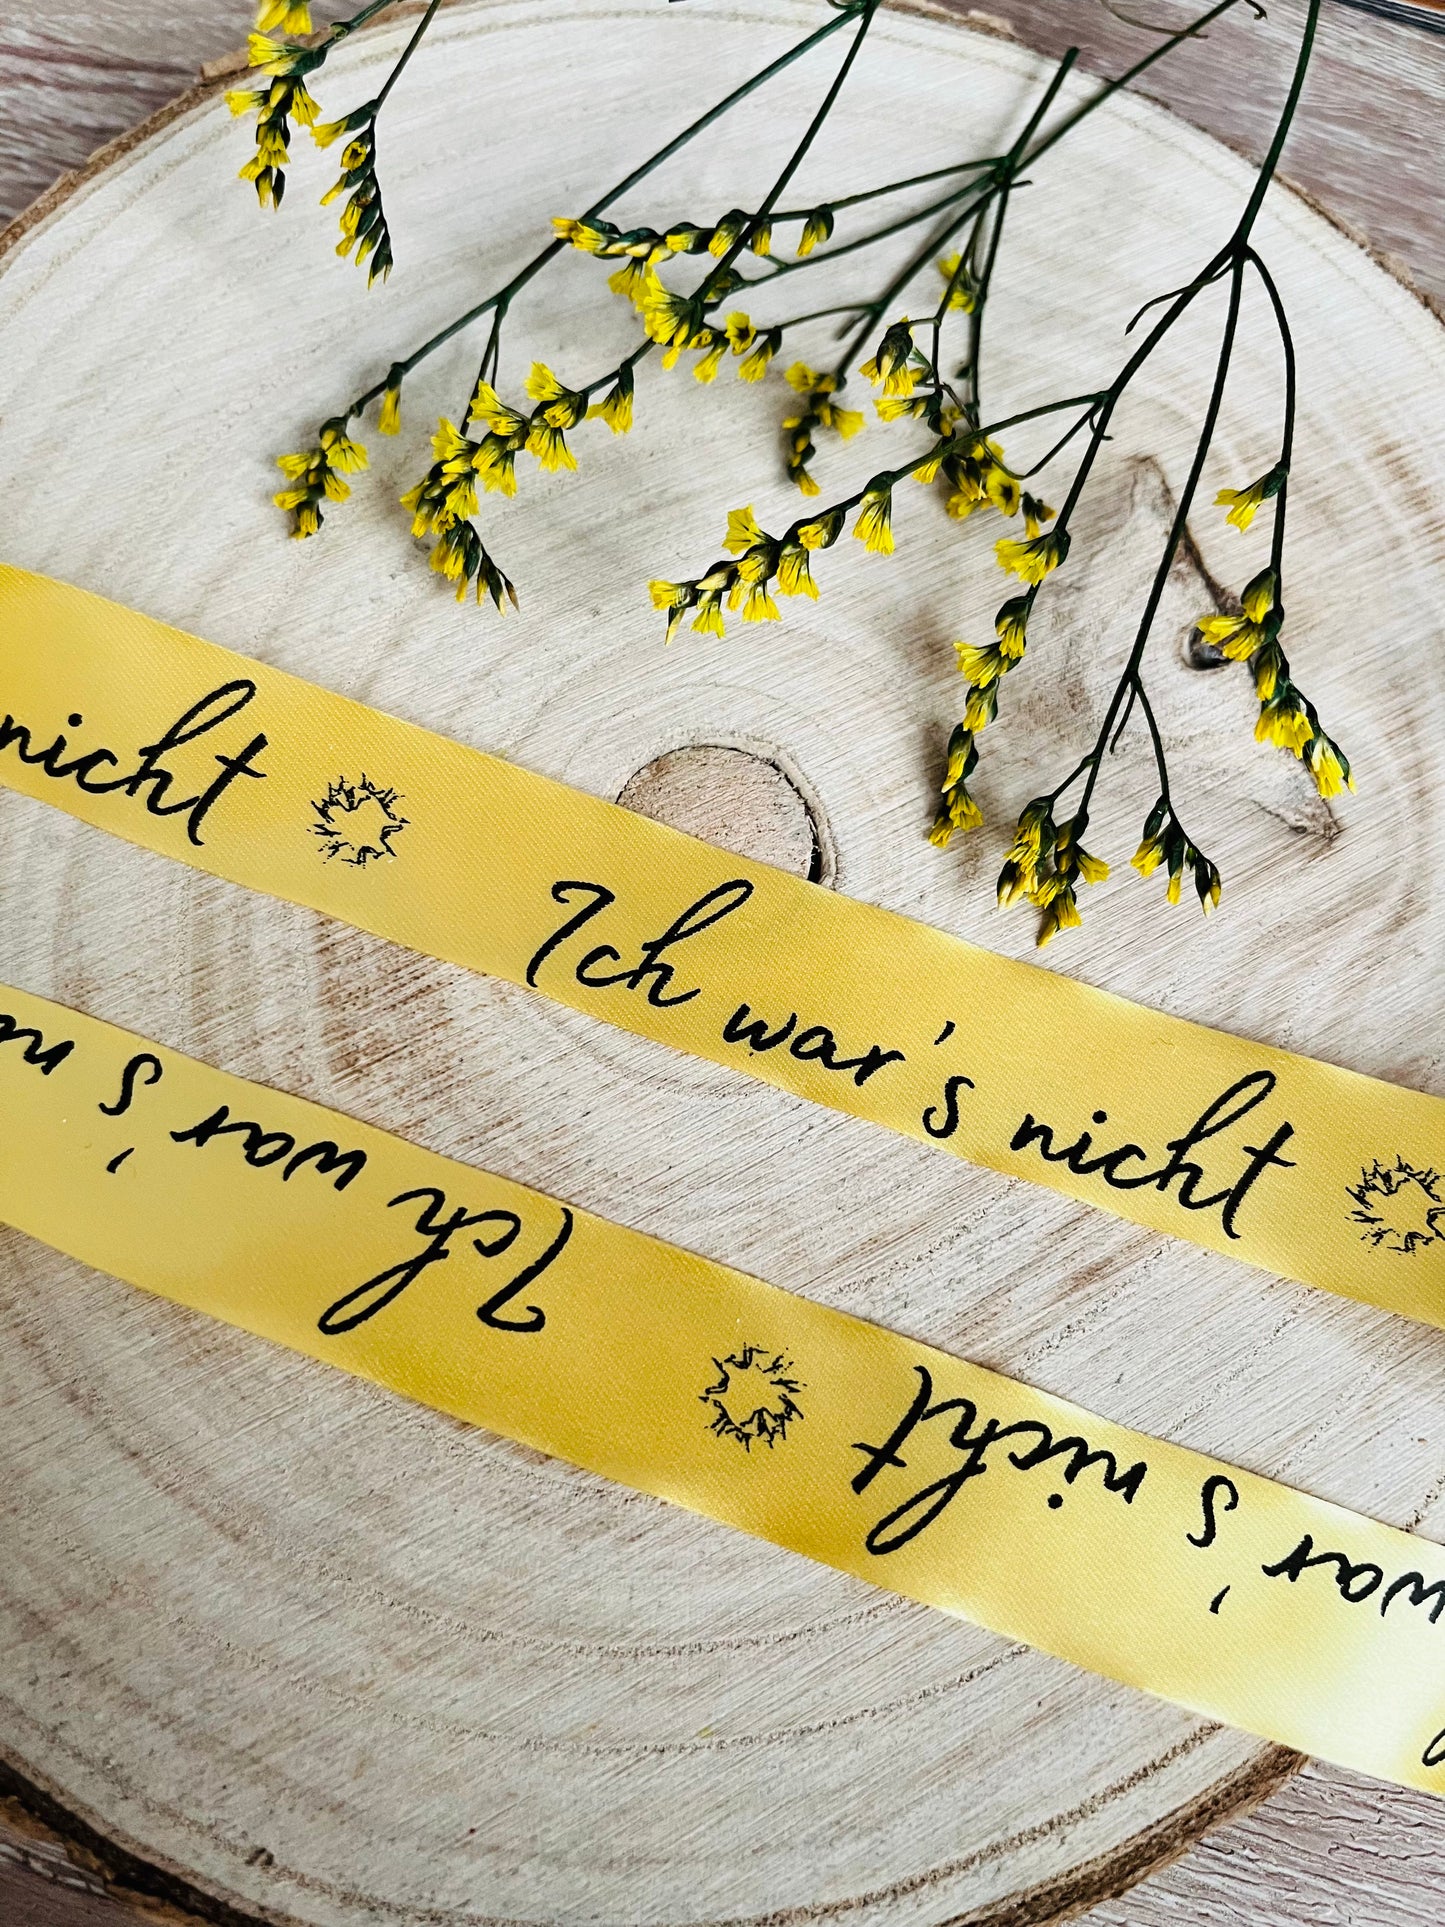 nicht Ich war's nicht
Ich war's
war's nicht